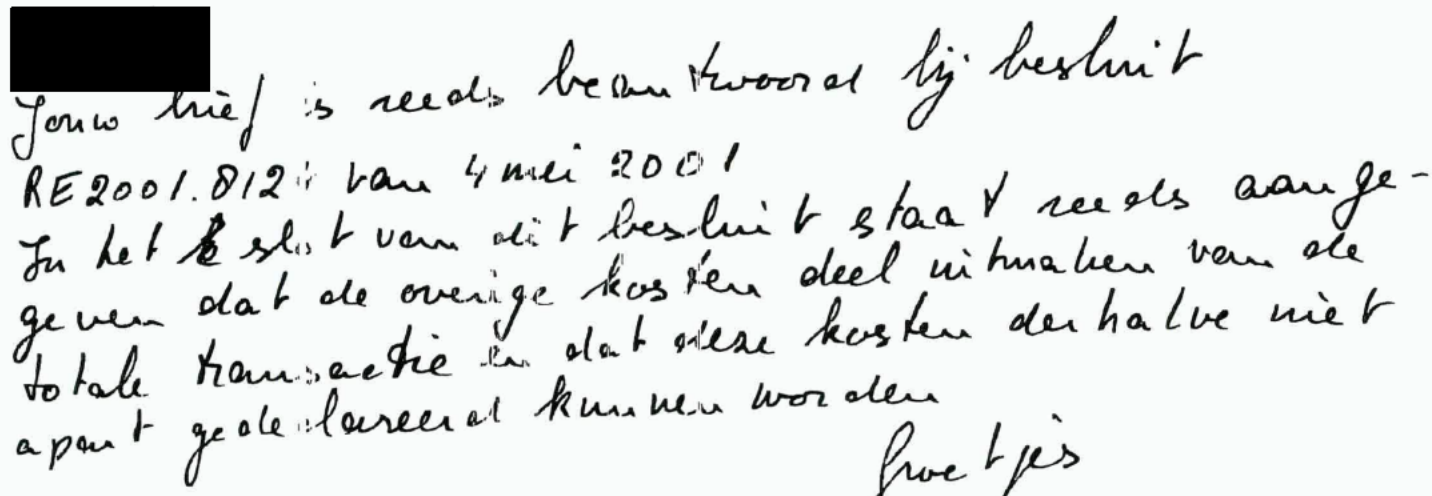 Jouw brief is reeds beantwoord bij besluit
RE2001.812 van 4 mei 2001
In het slot van dit besluit staat reeds aange-
geven dat de overige kosten deel uitmaken van de
totale transactie en dat deze kosten derhalve niet
apart gedeclareerd kunnen worden
Groetjes